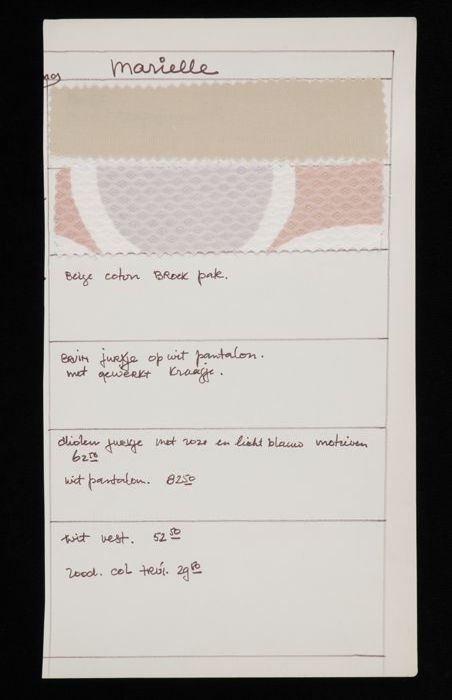 Marielle
Beige coton BROEK pak.
BRUIN jurkje op wit pantalon.
met gewerkt kraagje.
diolen jurkje met roze en licht blauw motieven
62 50
wit pantalon. 82 50
wit vest. 52 50
rood. col trui. 29 50